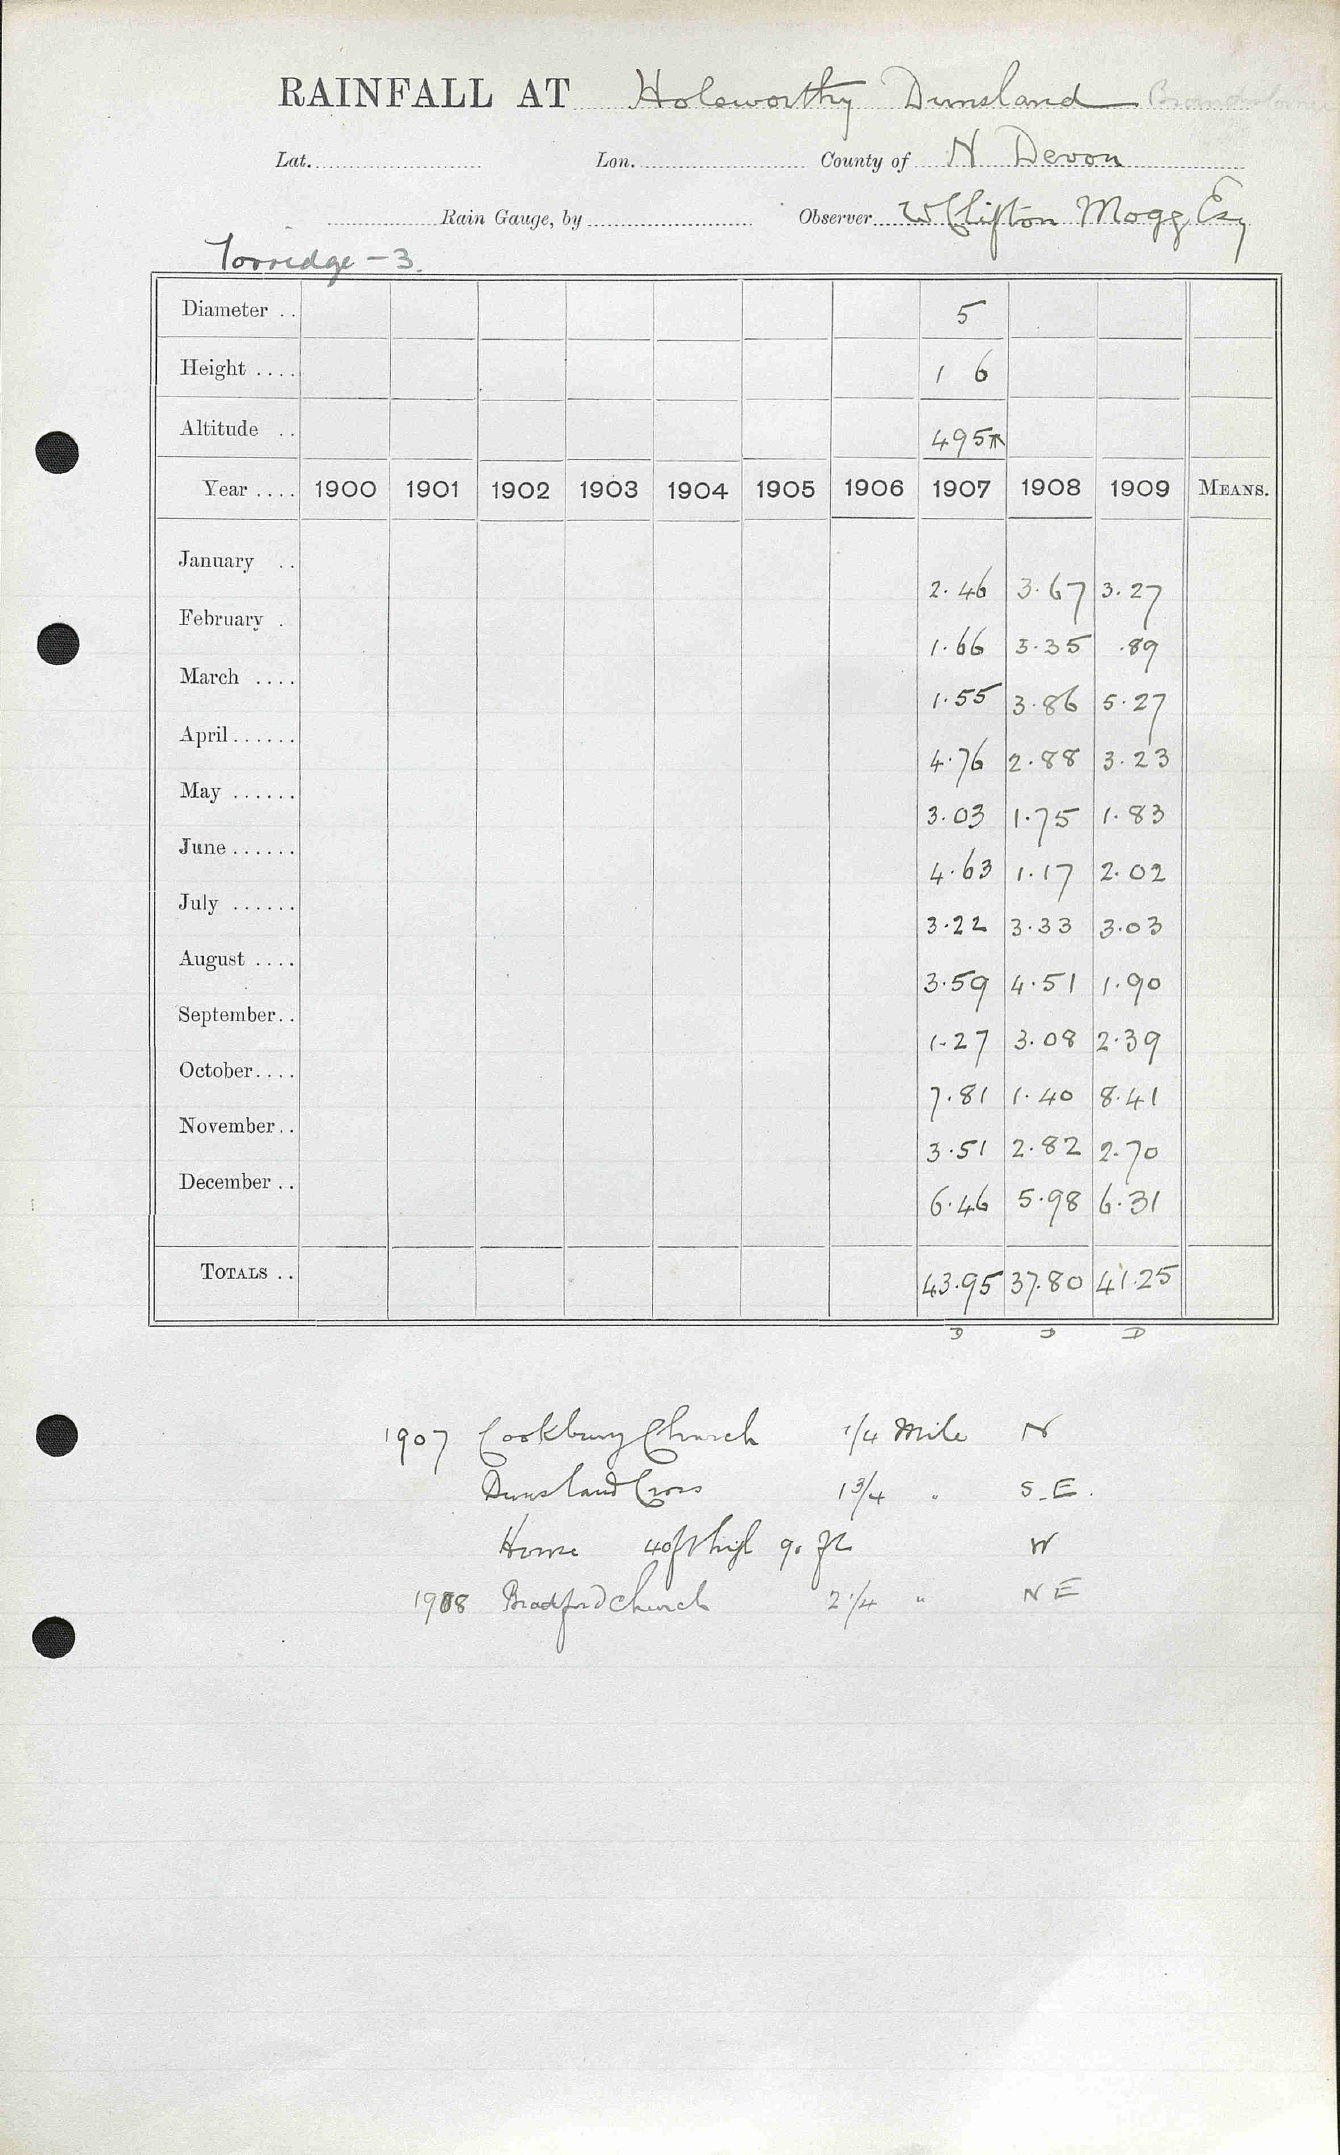 RAINFALL AT Holsworthy Dunsland
Lat. Lon. County of N Devon
Rain Gauge, by Observer W Clifton Mogg Esq
Torridge - 3.
Diameter .. 5
Height .... 1 6
Altitude .. 495
Year .... 1900 1901 1902 1903 1904 1905 1906 1907 1908 1909 MEANS.
January .. 2.46 3.67 3.27
February . 1.66 3.35 .89
March .... 1.55 3.86 5.27
April ...... 4.76 2.88 3.23
May ...... 3.03 1.75 1.83
June ...... 4.63 1.17 2.02
July ...... 3.22 3.33 3.03
August .... 3.59 4.51 1.90
September.. 1.27 3.08 2.39
October.... 7.81 1.40 8.41
November.. 3.51 2.82 2.70
December .. 6.46 5.98 6.31
TOTALS .. 43.95 37.80 41.25
D D D
1907 Cookbury Church 1/4 Mile N
Dunsland Cross 1 3/4 " S.E.
House 40ft high 90 ft W
1908 Bradford Church 2 1/4 " NE